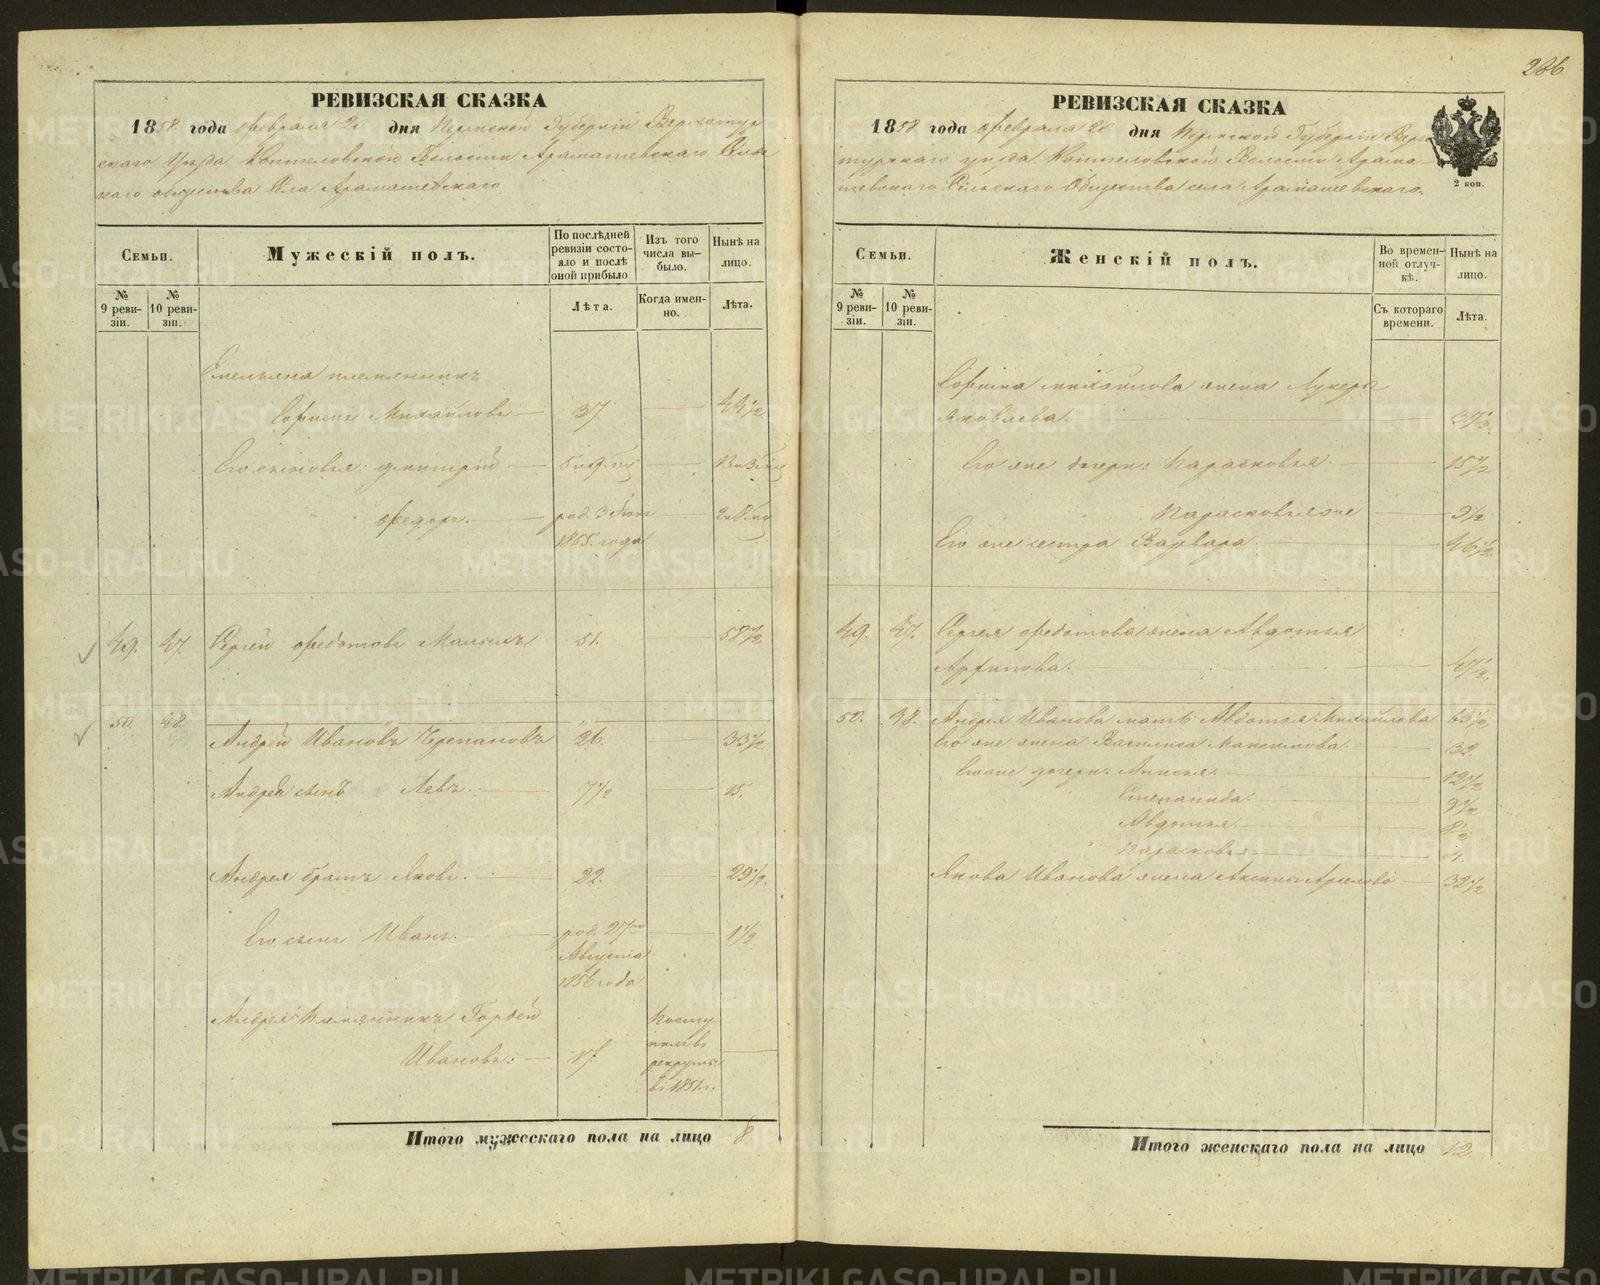 286
РЕВИЗСКАЯ СКАЗКА
1858 года февраля 20 дня Пермской Губерніи Верхотур
скаго Уѣзда Коптеловской Волости Арамашевскаго Сель
скаго общества Села Арамашевскаго
Семьи.
Мужескій полъ.
По послѣдней ревизіи состояло и послѣ оной прибыло
Изъ того числа выбыло.
Нынѣ на лицо.
№ 9 ревизіи.
№ 10 ревизіи.
Лѣта.
Когда именно.
Лѣта.
Емельяна племянникъ
Михайловъ 37 44½
Его сыновья: Дмитрій
Федоръ. род. 3
1855 года
49. 47. Сергей Федотовъ Малыхъ 51. 58½
50. 48.
Андрей Ивановъ Черепановъ 26. 33½
Андрея сынъ Левъ. 7½ 15.
Андрея братъ Яковъ. 22. 29½.
Его сынъ Иванъ. род. 27го 1½
Августа
1856 года
Андрея племянникъ Гордей
Ивановъ: 17. Посту
пилъ въ
рекруты
въ 1851 г.
Итого мужескаго пола на лицо 8
РЕВИЗСКАЯ СКАЗКА
1858 года февраля 20 дня Пермской Губерніи Верхо
турскаго уѣзда Коптеловской Волости Арама
шевскаго Сельскаго Общества села Арамашевскаго.
2 коп.
Семьи.
Женскій полъ.
Во временной отлучкѣ.
Нынѣ на лицо.
№ 9 ревизіи.
№ 10 ревизіи.
Съ котораго времени.
Лѣта.
Михайлова жена Лукерья
Яковлева. 37½.
Его же дочери: Парасковья. 15½
Парасковья же 9½
Его же сестра Варвара 46½.
49. 47. Сергея Федотова жена Авдотья
47½.
50. 48. Андрея Иванова мать Авдотья Михайлова 63½
Его же жена Василиса Максимова. 32
Его же дочери: Анисья. 12½
Степанида. 9½
Авдотья.
Парасковья. 4.
Якова Иванова жена 32½
Итого женскаго пола на лицо 12.
METRIKI.GASO-URAL.RU